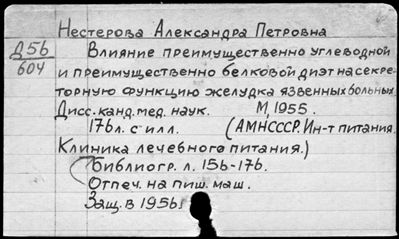 Нестерова Александра Петровна
Д56
604
Влияние преимущественно углеводной
и преимущественно белковой диэт на секре-
торную функцию желудка язвенных больных.
Дисс. канд. мед. наук. М, 1955.
176 л. с илл. (АМН СССР. Ин-т питания.
Клиника лечебного питания.)
Библиогр. л. 156-176.
Отпеч. на пиш. маш.
Защ. в 1956г